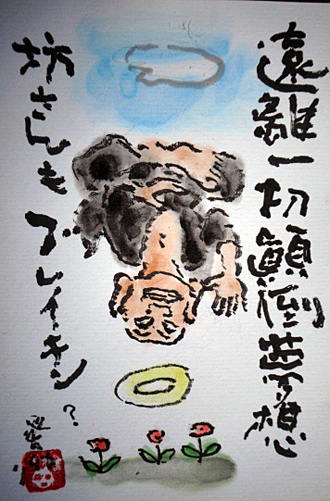 遠離一切顛倒夢想
坊さんもブレイキン?